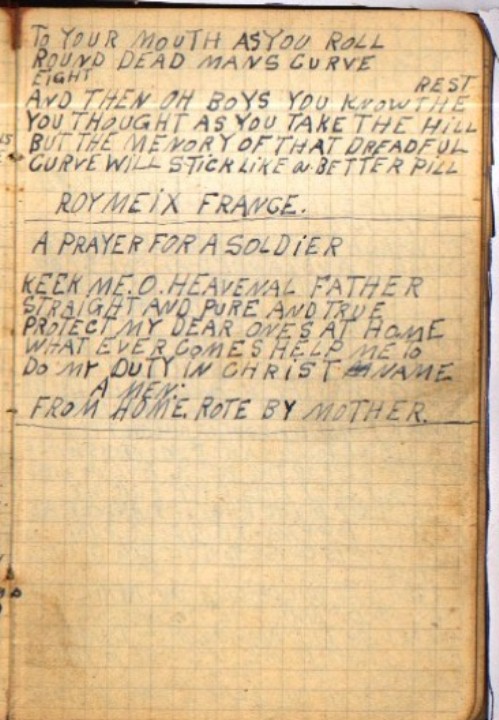 TO YOUR MOUTH AS YOU ROLL
ROUND DEAD MANS CURVE
EIGHT
REST
AND THEN OH BOYS YOU KNOW THE
YOU THOUGHT AS YOU TAKE THE HILL
BUT THE MEMORY OF THAT DREADFUL
CURVE WILL STICK LIKE a BETTER PILL
ROYMEIX FRANGE.
A PRAYER FOR A SOLDIER
KEEK ME. O. HEAVENAL FATHER
STRAIGHT AND PURE AND TRUE
PROTECT MY DEAR ONES AT HOME
WHAT EVER COMES HELP ME TO
DO MY DUTY IN CHRIST NAME
A MEN.
FROM HOME. ROTE BY MOTHER.